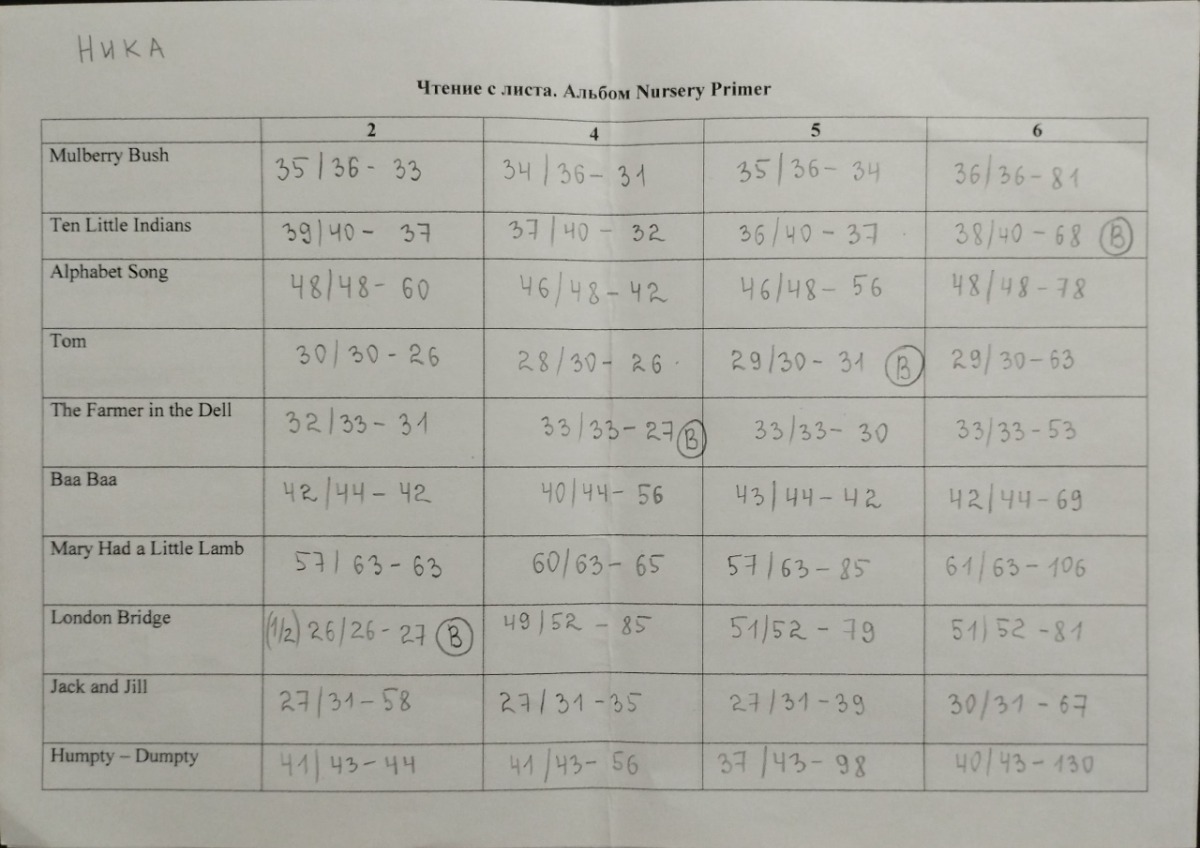 НИКА
Чтение с листа. Альбом Nursery Primer
2 4 5 6
Mulberry Bush 35/36 - 33 34/36 - 31 35/36 - 34 36/36 - 81
Ten Little Indians 39/40 - 37 37/40 - 32 36/40 - 37 38/40 - 68 В
Alphabet Song 48/48 - 60 46/48 - 42 46/48 - 56 48/48 - 78
Tom 30/30 - 26 28/30 - 26 29/30 - 31 В 29/30 - 63
The Farmer in the Dell 32/33 - 31 33/33 - 27 В 33/33 - 30 33/33 - 53
Baa Baa 42/44 - 42 40/44 - 56 43/44 - 42 42/44 - 69
Mary Had a Little Lamb 57/63 - 63 60/63 - 65 57/63 - 85 61/63 - 106
London Bridge (1/2) 26/26 - 27 В 49/52 - 85 51/52 - 79 51/52 - 81
Jack and Jill 27/31 - 58 27/31 - 35 27/31 - 39 30/31 - 67
Humpty – Dumpty 41/43 - 44 41/43 - 56 37/43 - 98 40/43 - 130